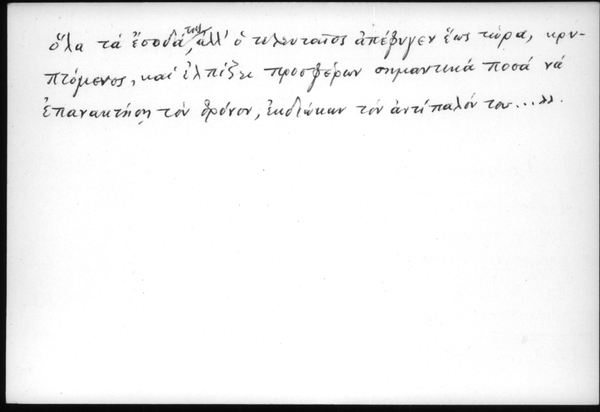 ὅλα τά ἔσοδά τους, ἀλλ' ὁ τελευταῖος ἀπέφυγεν ἕως τώρα, κρυ-
πτόμενος, καί ἐλπίζει προσφέρων σημαντικά ποσά νά
ἐπανακτήσῃ τόν θρόνον, ἐκδιώκων τόν ἀντίπαλόν του...».